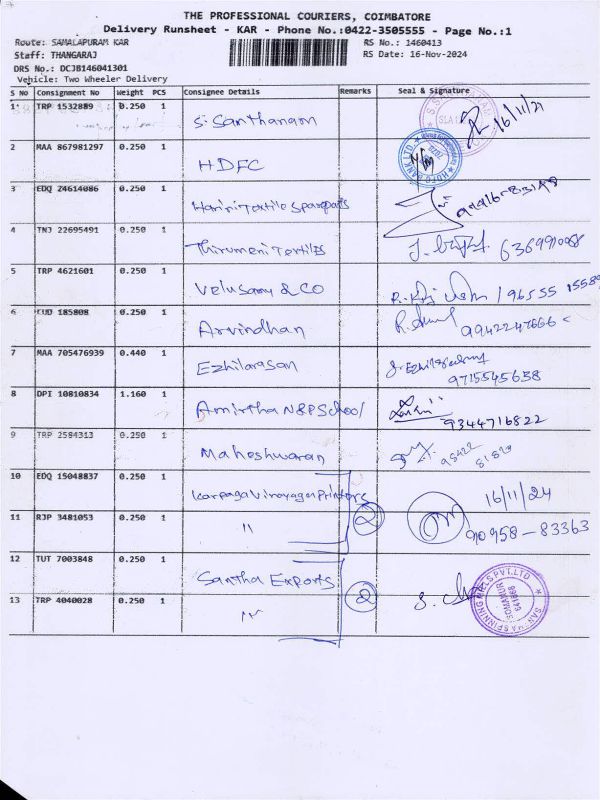 THE PROFESSIONAL COURIERS, COIMBATORE
Delivery Runsheet - KAR - Phone No.:0422-3505555 - Page No.:1
Route: SAMALAPURAM KAR
RS No.: 1460413
Staff: THANGARAJ
RS Date: 16-Nov-2024
DRS No.: DCJB146041301
Vehicle: Two Wheeler Delivery
S No Consignment No Weight PCS Consignee Details Remarks Seal & Signature
1 TRP 1532889 0.250 1 S. Santhanam 16/11/24
2 MAA 867981297 0.250 1 HDFC HDFC BANK LTD
3 EDQ 24614086 0.250 1 Harini Textile Spareparts
4 TNJ 22695491 0.250 1 Thirumeni Textiles
5 TRP 4621601 0.250 1 Velusamy & CO
6 CUD 185808 0.250 1 Arvindhan
7 MAA 705476939 0.440 1 Ezhilarasan 9715545638
8 DPI 10810834 1.160 1 Amirtha N&P School 9344716822
9 TRP 2584313 0.250 1 Maheshwaran
10 EDQ 15048837 0.250 1 Karpaga Vinayagar Printers 16/11/24
11 RJP 3481053 0.250 1 " 2 90958-83363
12 TUT 7003848 0.250 1 Santha Exports
13 TRP 4040028 0.250 1 " 2 SPINNING MILLS PVT.LTD SOMANUR 641668